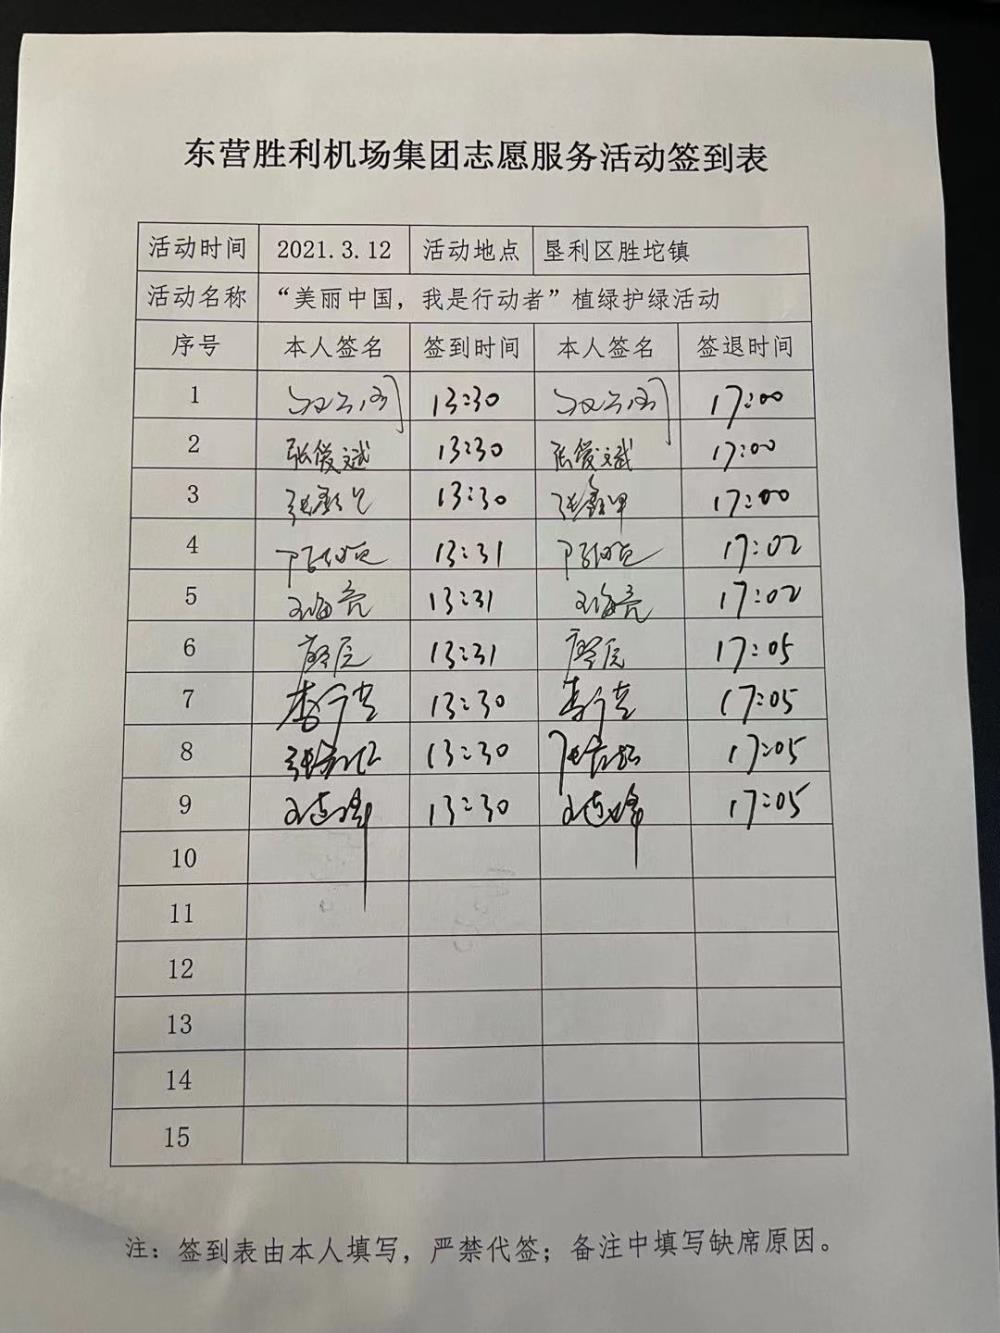 东营胜利机场集团志愿服务活动签到表
活动时间 2021.3.12 活动地点 垦利区胜坨镇
活动名称 “美丽中国，我是行动者”植绿护绿活动
序号 本人签名 签到时间 本人签名 签退时间
1 13:30 17:00
2 张俊斌 13:30 张俊斌 17:00
3 13:30 17:00
4 13:31 17:02
5 王海亮 13:31 王海亮 17:02
6 13:31 17:05
7 13:30 17:05
8 13:30 17:05
9 13:30 17:05
10
11
12
13
14
15
注：签到表由本人填写，严禁代签；备注中填写缺席原因。